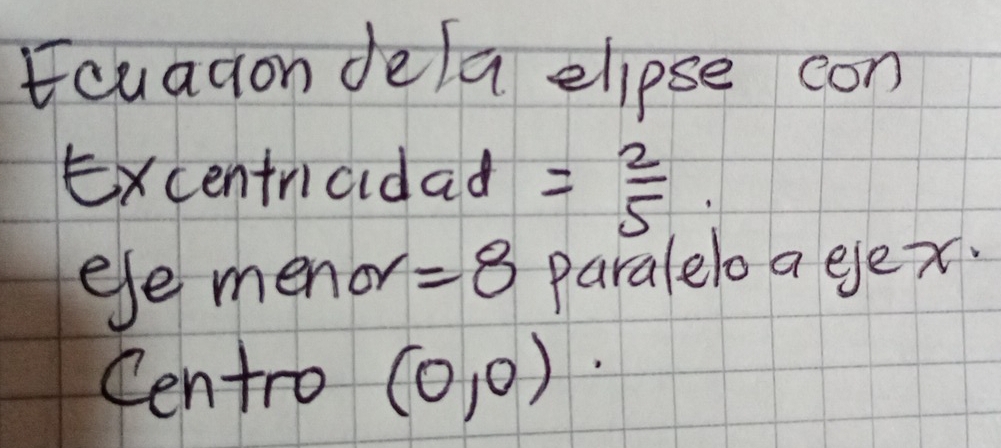 Ecuacion de la elipse con
Excentricidad = 2/5.
eje menor = 8 paralelo a eje x.
Centro (0,0).